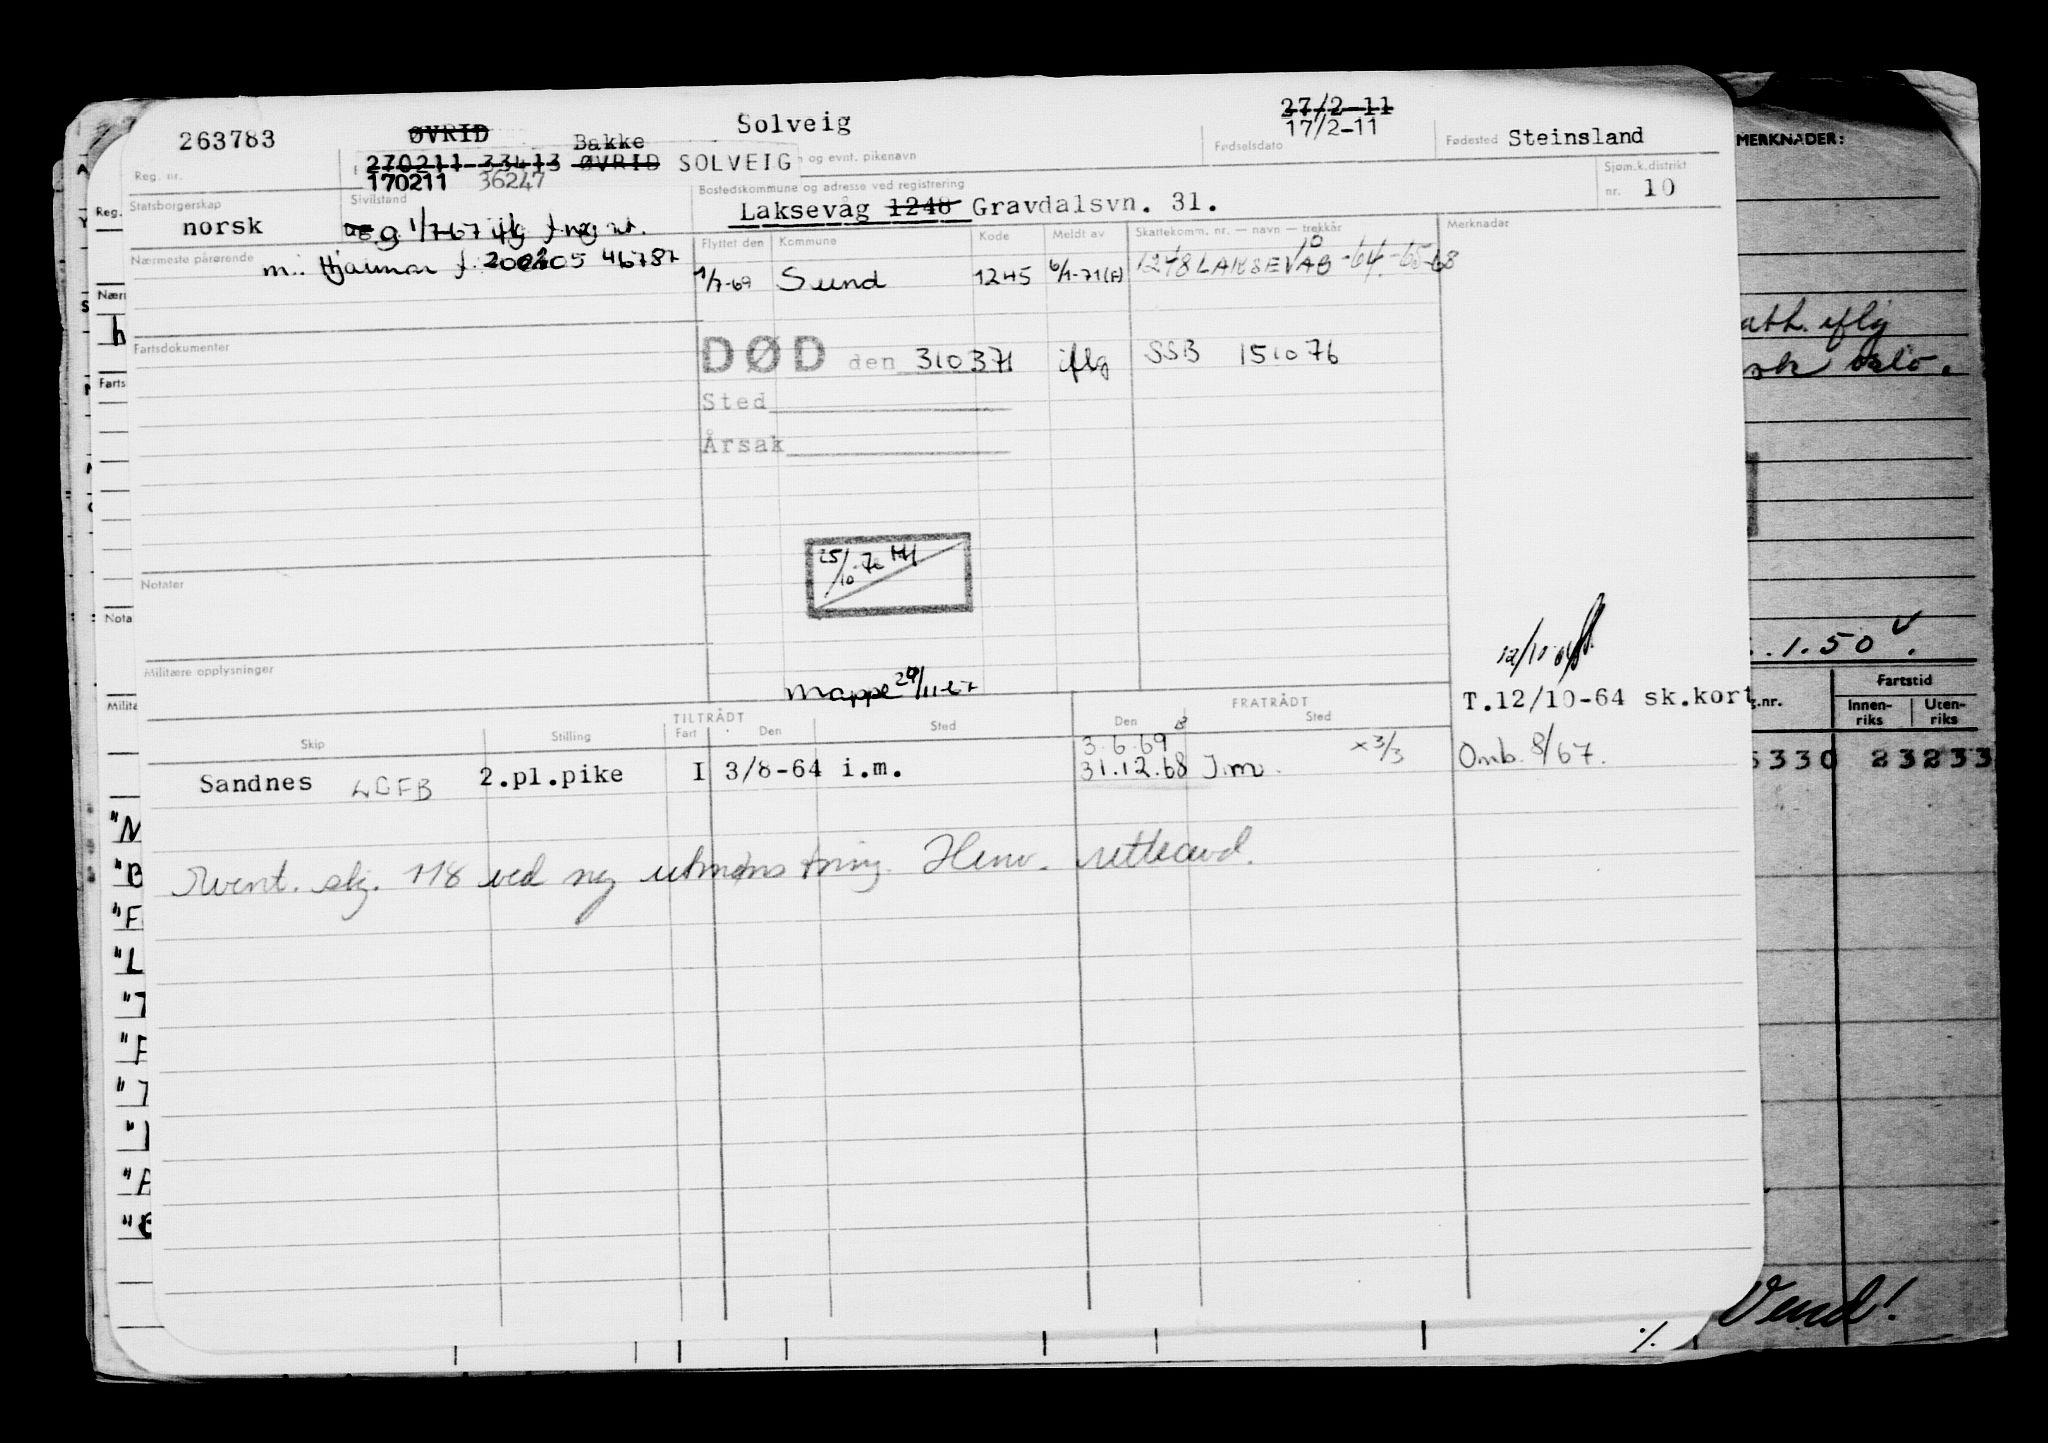 263783 ØVRID Bakke Solveig 27/2-11
17/2-11
Reg. nr. 270211-33413 ØVRID SOLVEIG n og evnt. pikenavn Fødselsdato Fødested Steinsland
170211 36247
Statsborgerskap Sivilstand Bostedskommune og adresse ved registrering Sjøm.k.distrikt
norsk g 1/7-67 iflg Laksevåg 1248 Gravdalsvn. 31. nr. 10
Nærmeste pårørende Flyttet den Kommune Kode Meldt av Skattekomm. nr. — navn — trekkår Merknader
m.: Hjalmar f. 46787
1/7-69 Sund 1245 6/1-71(F) 1248 LAKSEVÅG -64-65-68
Fartsdokumenter
DØD den 310371 iflg SSB 151076
Sted
Årsak
25/10-76
Notater
Militære opplysninger
Mappe 29/11-67
T.12/10-64 sk.kort
TILTRÅDT FRATRÅDT
Skip Stilling Fart Den Sted Den Sted
3.6.69 x3/3
Sandnes LGFB 2.pl.pike I 3/8-64 i.m. 31.12.68 I.m. Omb. 8/67.
Event. skj. 118 ved ny utmønstring. Henv. retteavd.
%
MERKNADER:
iflg
Oslo.
1.50
Fartstid
g.nr. Innen-riks Uten-riks
5330 23233
Vend!
Reg.
Nærm
Farts
Nota
Milita